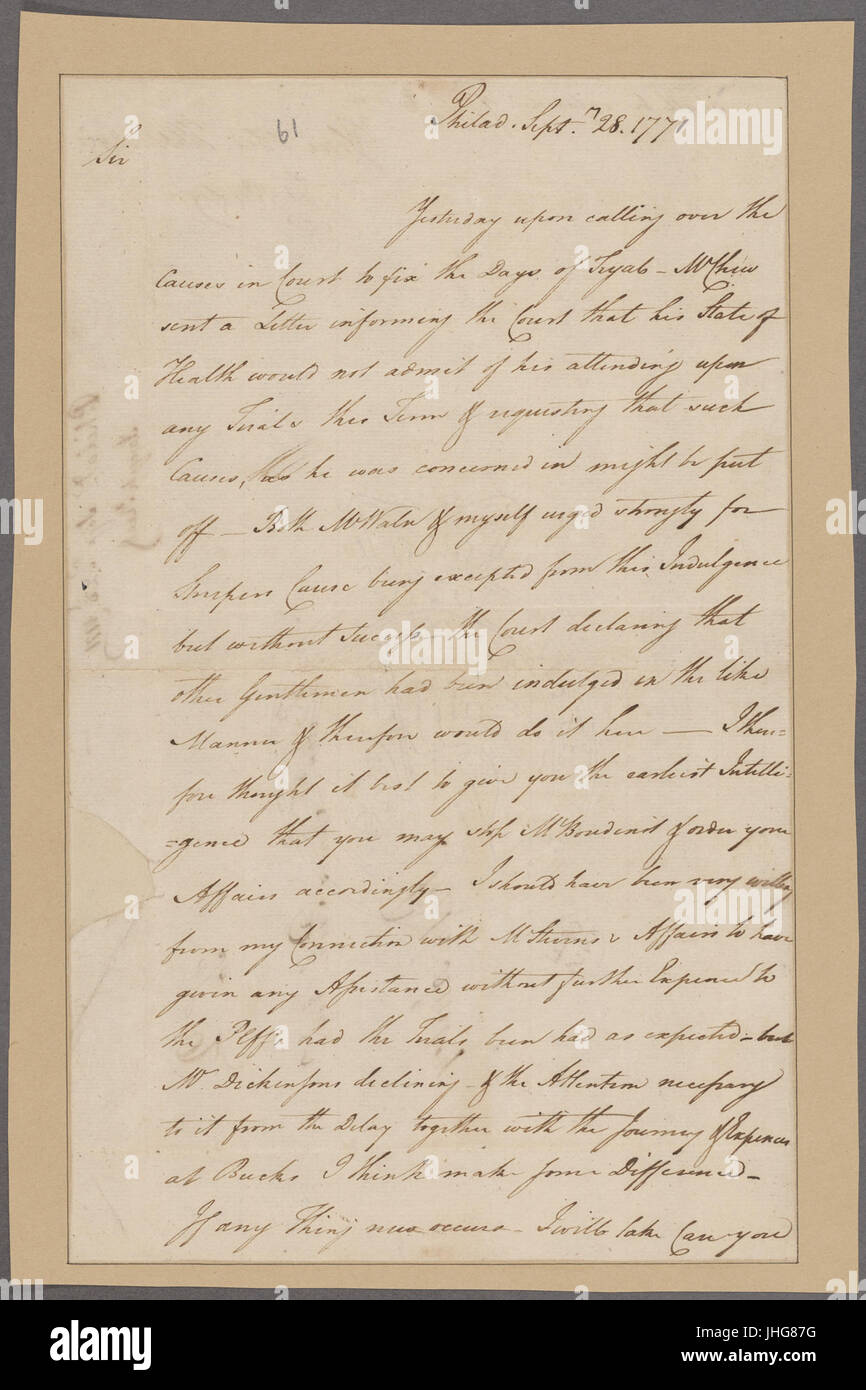 61
Philad. Sept.r 28. 1771
Sir
Yesterday upon calling over the
Causes in Court to fix the Days of Tryals – Mr Chew
sent a Letter informing the Court that his State of
Health would not admit of his attending upon
any Trials this Term & requesting that such
Causes, he was concerned in might be put
off – Both Mr Waln & myself urged strongly for
Cause being excepted from this Indulgence
but without Success – the Court declaring that
other Gentlemen had been indulged in the like
Manner & therefore would do it here — I there=
fore thought it best to give you the earliest Intelli=
=gence that you may stop Mr Boudinot & order your
Affairs accordingly – I should have been very willing
from my Connection with Mr Affairs to have
given any Assistance without further Expence to
the Plffs had the Trials been had as expected – but
Mr. Dickensons declining – & the Attention necessary
to it from the Delay together with the Journey & Expences
at Bucks I think make some Difference –
If any Thing new occurs – I will take Care you
alamy
alamy stock photo
JHG87G
www.alamy.com